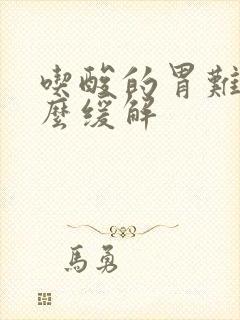 喫酸的胃難
麼緩解
馬勇